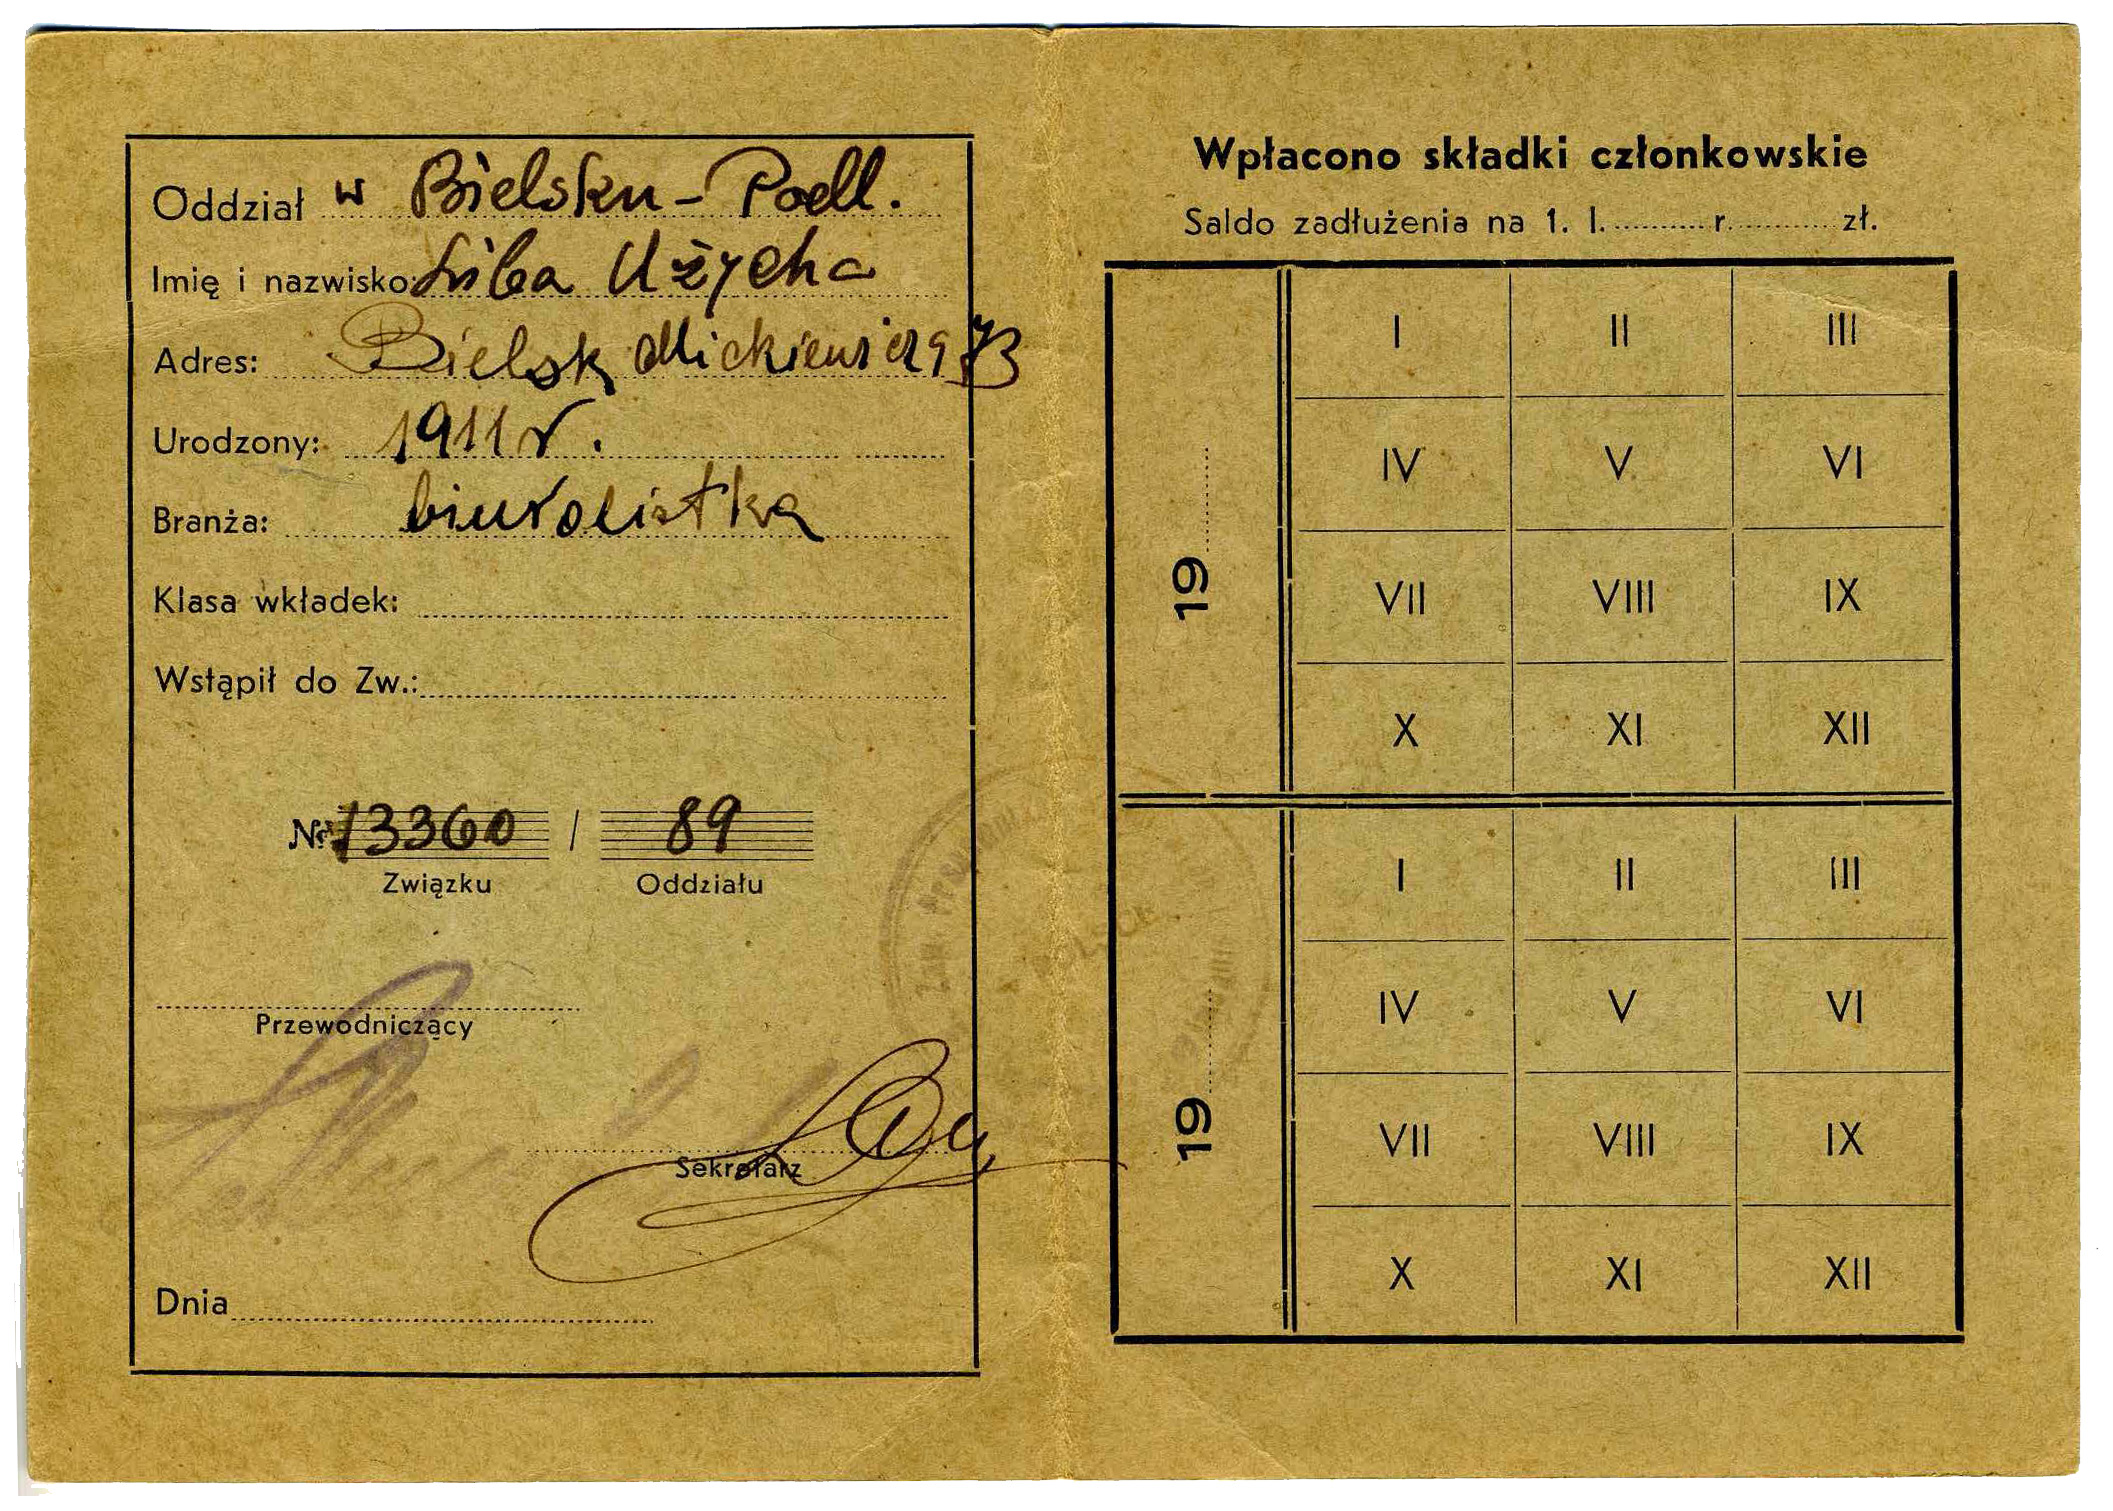 Oddział w Bielsku-Podl.
Imię i nazwisko: Liba Użycha
Adres: Bielsk Mickiewicza 73
Urodzony: 1911 r.
Branża: biuralistka
Klasa wkładek:
Wstąpił do Zw.:
Nr 13360 / 89
Związku Oddziału
Przewodniczący
Sekretarz
Dnia
Wpłacono składki członkowskie
Saldo zadłużenia na 1. I. r. zł.
19
I II III
IV V VI
VII VIII IX
X XI XII
19
I II III
IV V VI
VII VIII IX
X XI XII